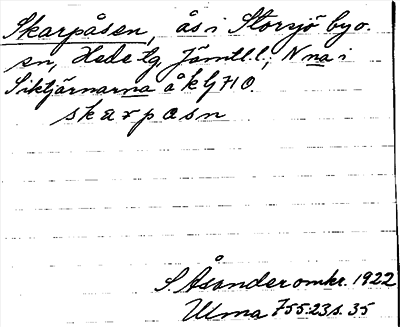 Skarpåsen, ås i Storsjö by o.
sn, Hede tg, Jämtl. l; N na i
Siktjärnarna å kG 710
skarpåsn
S Åsander omkr. 1922
Ulma 755:23 s. 35